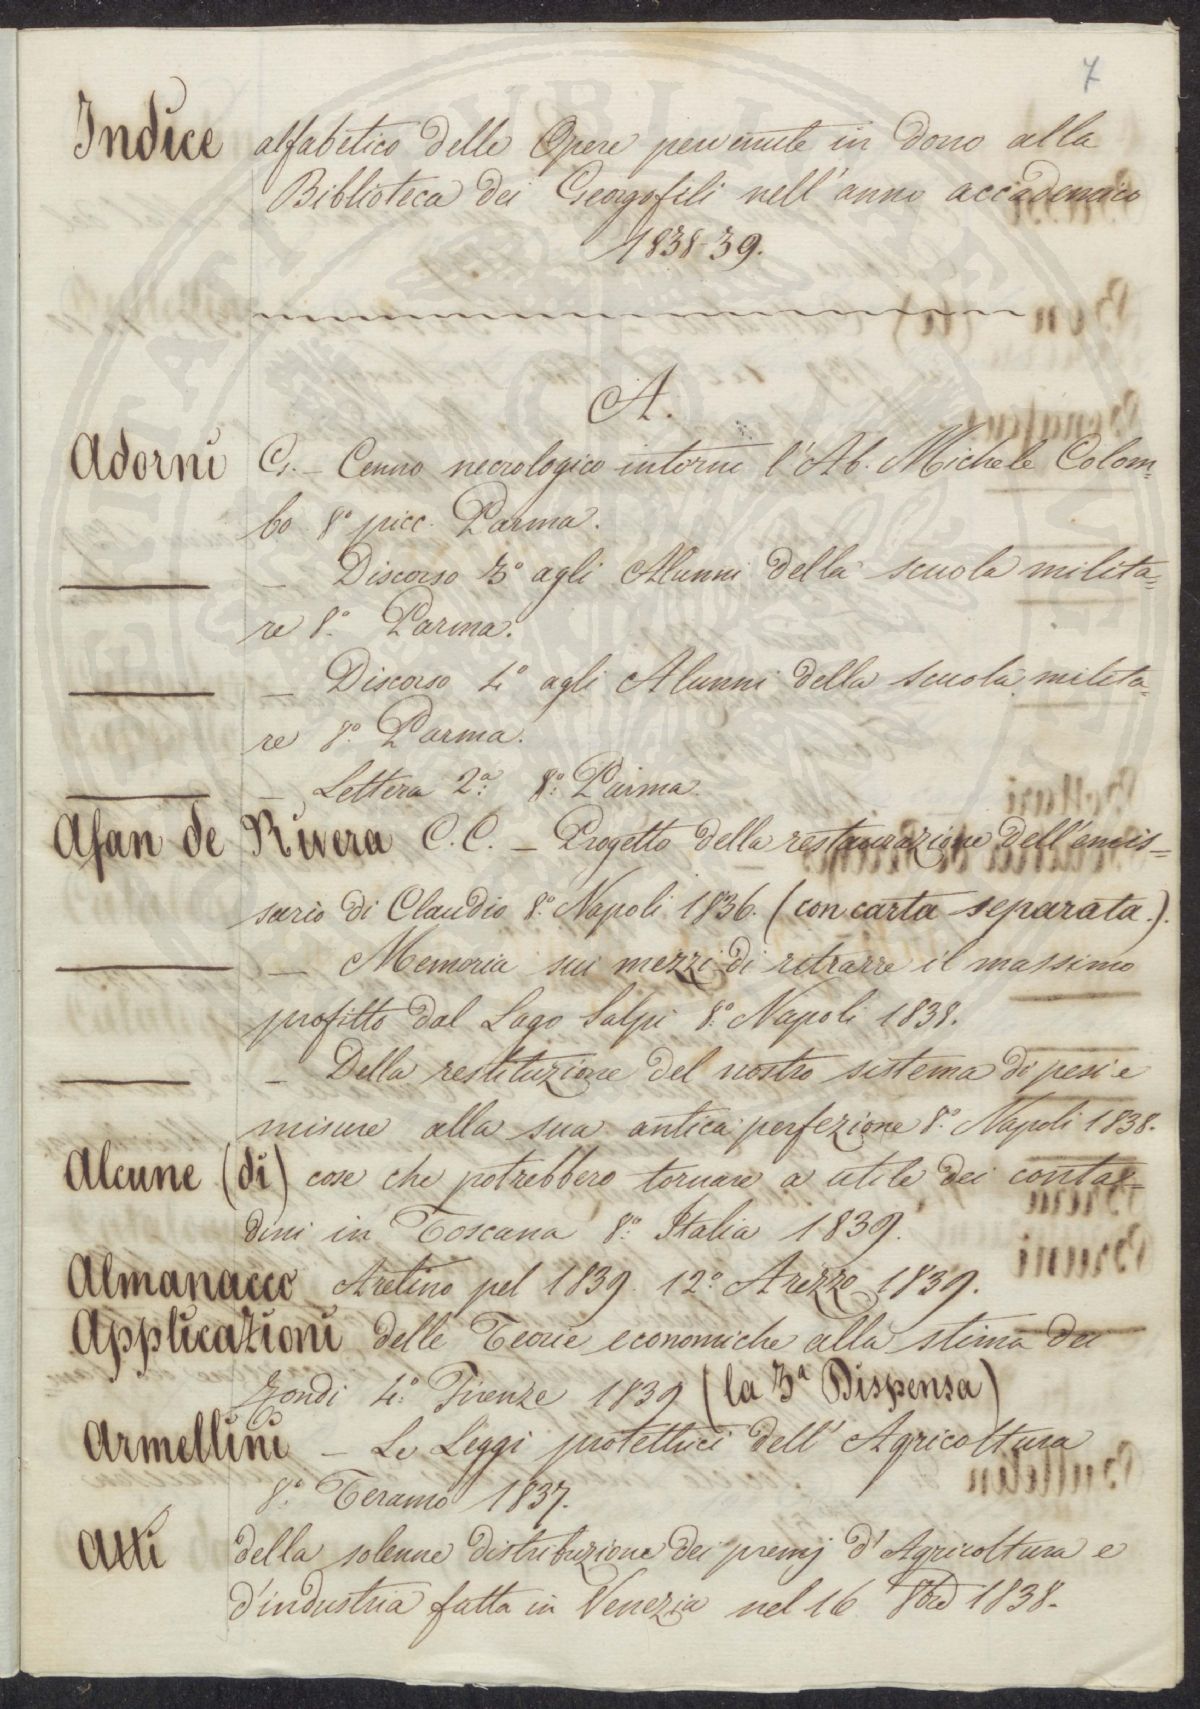 7
Indice alfabetico delle Opere pervenute in dono alla
Biblioteca dei Georgofili nell'anno accademico
1838-39.
A.
Adorni G. - Cenno necrologico intorno l'Ab. Michele Colom=
bo 8° picc. Parma.
— - Discorso 3° agli Alunni della scuola milita=
re 8° Parma.
— - Discorso 4° agli Alunni della scuola milita=
re 8° Parma.
— - Lettera 2ª 8° Parma.
Afan de Rivera C.C. - Progetto della restaurazione dell'emis=
sario di Claudio 8° Napoli 1836. (con carta separata.).
— - Memoria sui mezzi di ritrarre il massimo
profitto dal Lago Salpi 8° Napoli 1838.
— - Della restituzione del nostro sistema di pesi e
misure alla sua antica perfezione 8° Napoli 1838.
Alcune (di) cose che potrebbero tornare a utile dei conta=
dini in Toscana 8° Italia 1839.
Almanacco Aretino pel 1839. 12° Arezzo 1839.
Applicazioni delle Teorie economiche alla stima dei
Fondi 4° Firenze 1839 (la 3ª Dispensa)
Armellini - Le Leggi protettrici dell'Agricoltura
8° Teramo 1837.
Atti della solenne distribuzione dei premj d'Agricoltura e
d'industria fatta in Venezia nel 16 8bre 1838.